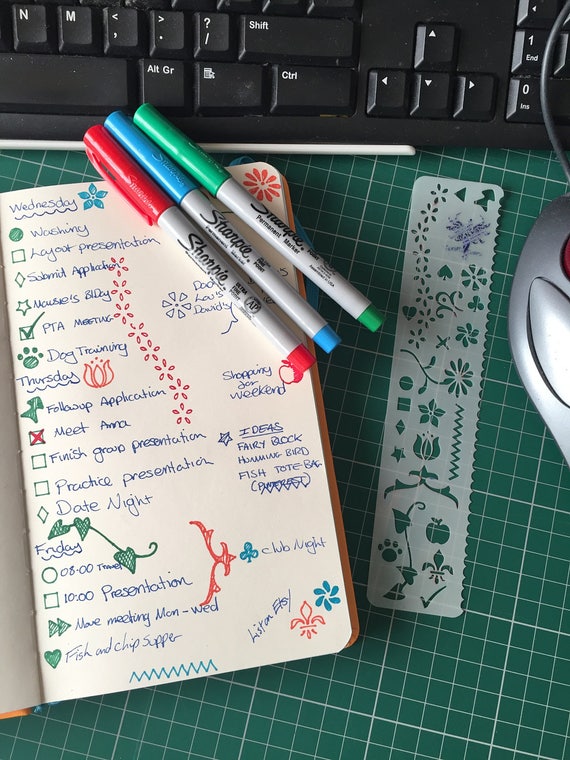 >
.
?
/
Shift
Alt Gr
Ctrl
1
End
0
Ins
Sharpie
Permanent Marker
Sharpie
Sharpie
Wednesday
Washing
Layout presentation
Submit Application
Mousie's BDay
PTA MEETING
Dog Training
Thursday
Followup Application
Meet Anna
Finish group presentation
Practice presentation
Date Night
Friday
08:00 Travel
10:00 Presentation
Move meeting Mon - Wed
Fish and chip Supper
Shopping
for
weekend
IDEAS
FAIRY BLOCK
HUMMING BIRD
FISH TOTE-BAG
(PINTEREST)
Club Night
List on Etsy